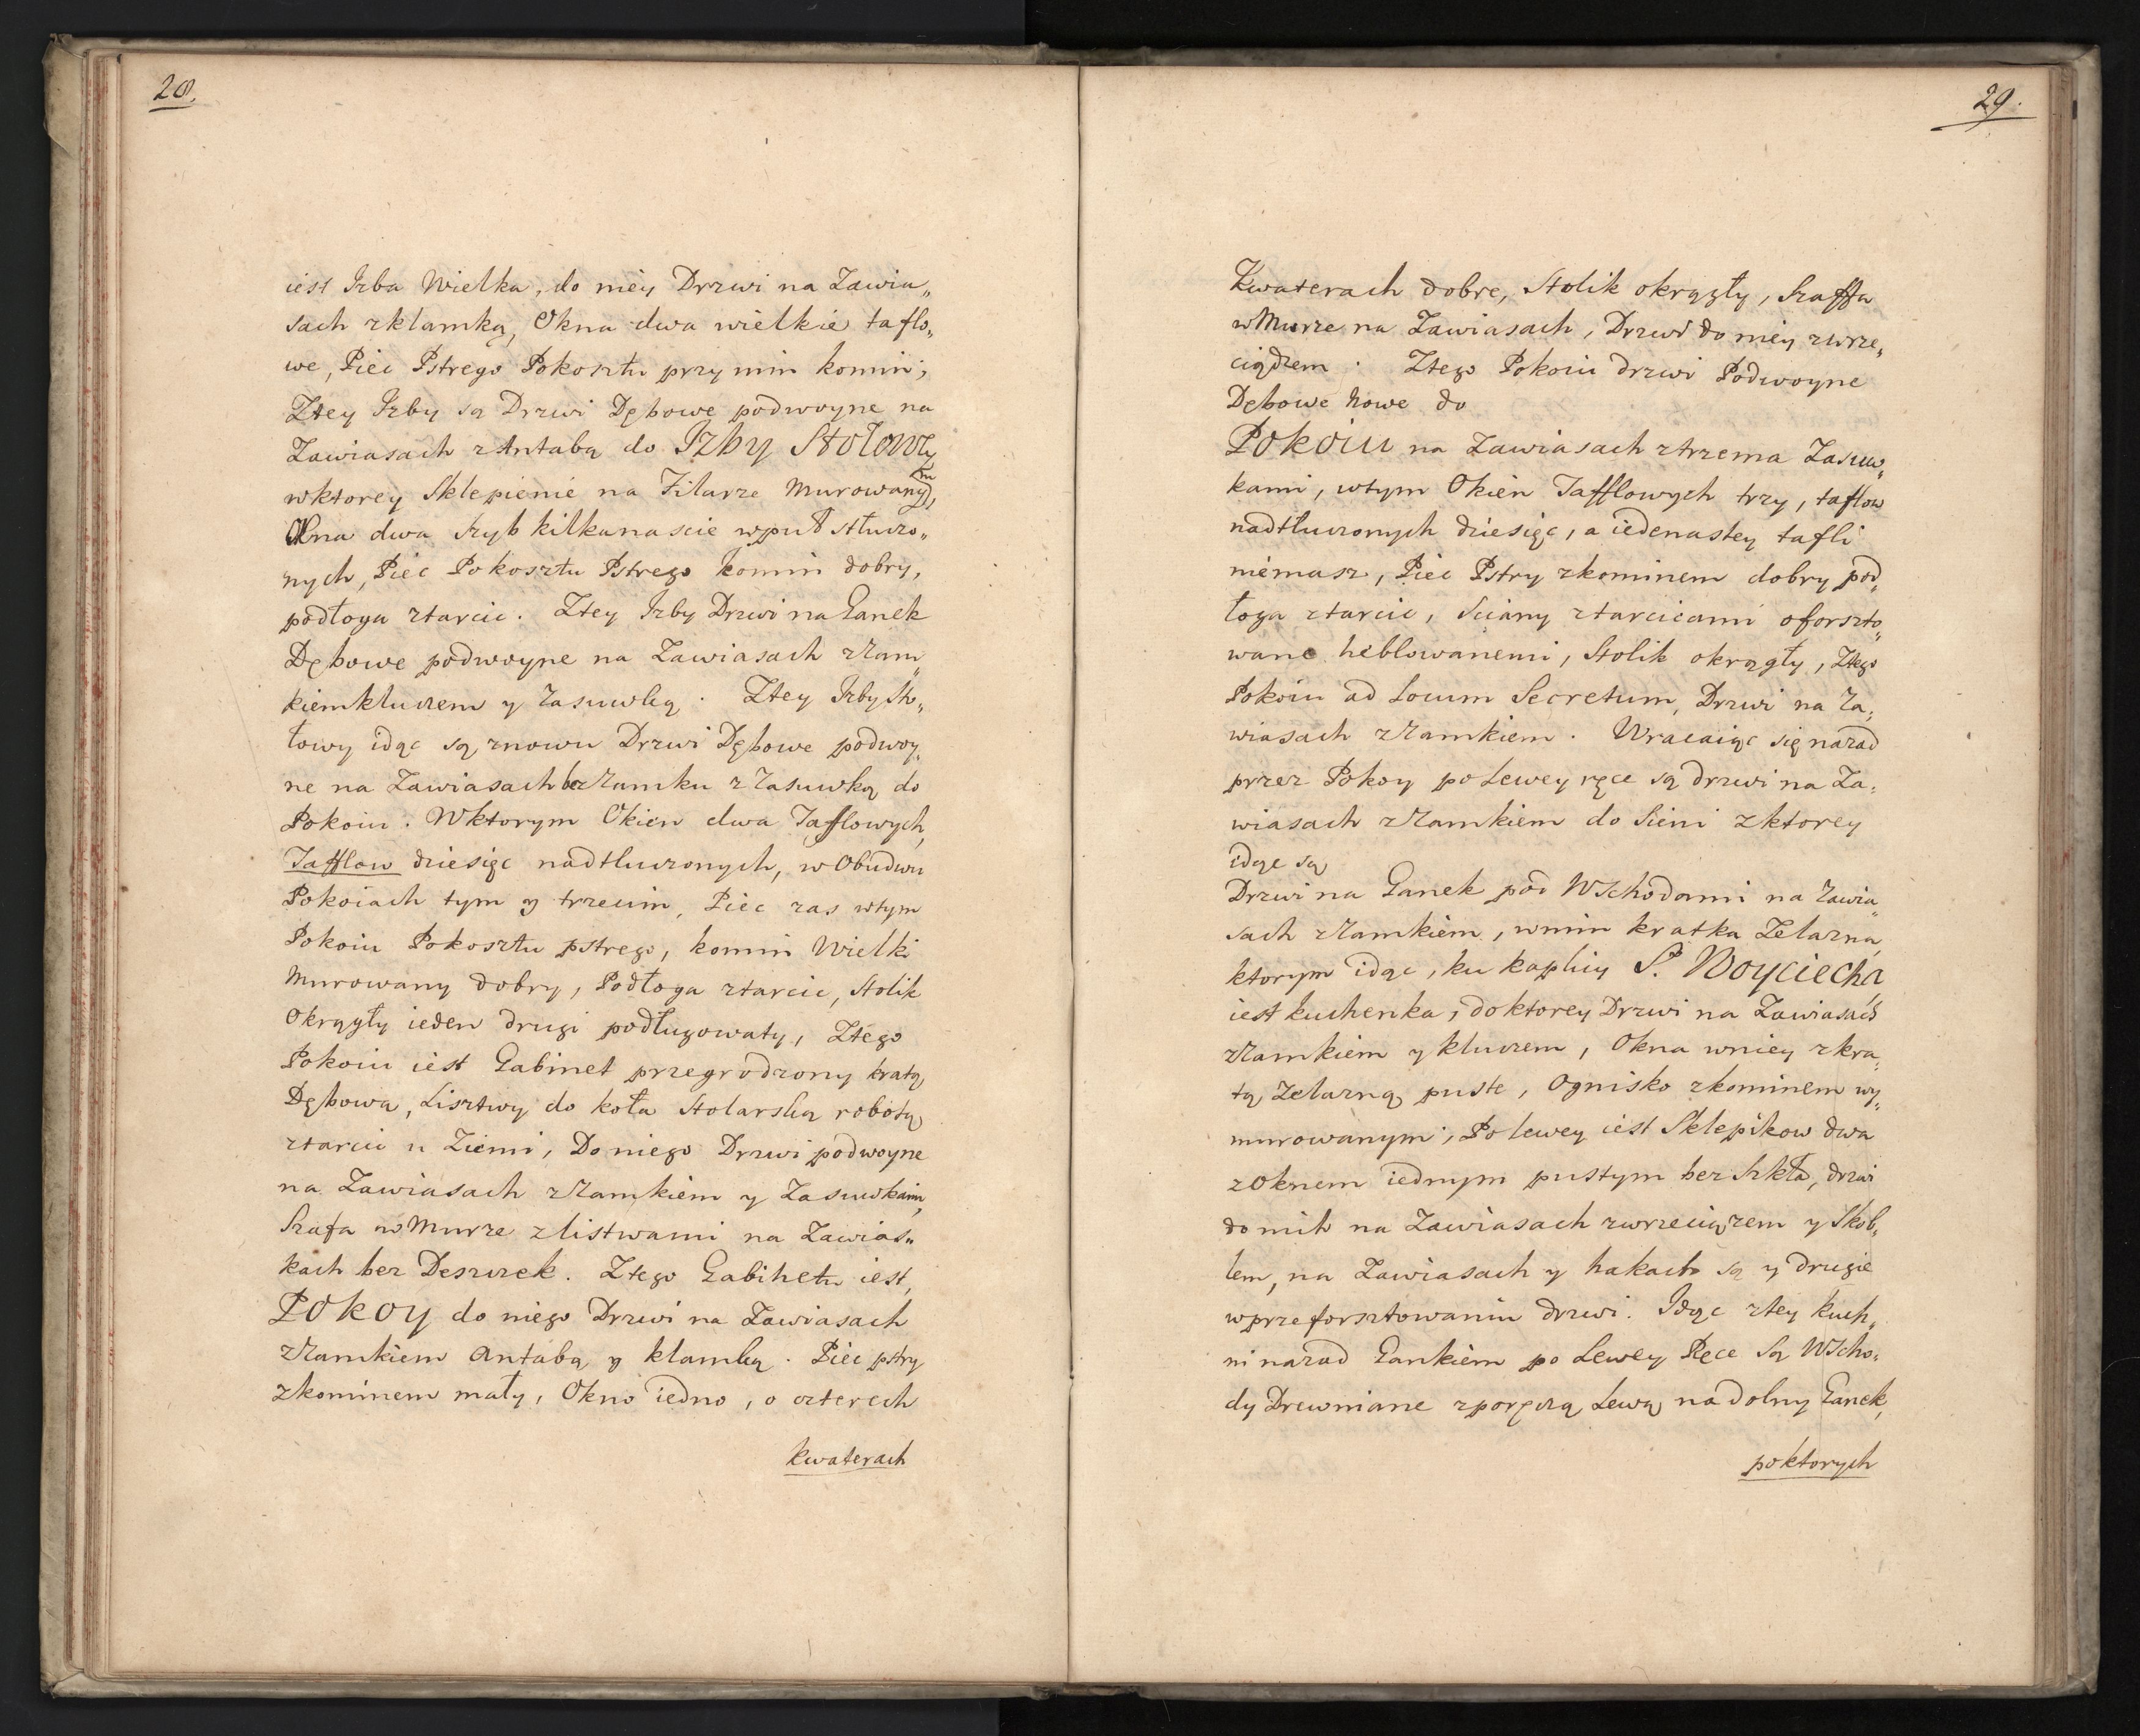 28.
iest Izba Wielka, do niey Drzwi na Zawia„
sach zklamką, Okna dwa wielkie taflo„
we, Piec Pstrego Pokosztu przy nim komin;
Ztey Izby są Drzwi Dębowe podwoyne na
Zawiasach zAntabą do Izby Stołowey
wktorey Sklepienie na Filarze Murowanym,
Okna dwa Szyb kilkanascie wpuł stłuczo„
nych, Piec Pokosztu Pstrego komin dobry,
podłoga ztarcic. Ztey Izby Drzwi na Ganek
Dębowe podwoyne na Zawiasach zZam„
kiem kluczem y Zasuwką. Ztey Izby Sto„
łowy idąc są znowu Drzwi Dębowe podwoy„
ne na Zawiasach bez Zamku z Zasuwką do
Pokoiu. Wktorym Okien dwa Tafflowych,
Tafflow dziesięc nadtłuczonych, w Obudwu
Pokoiach tym y trzecim, Piec zas wtym
Pokoiu Pokosztu pstrego, komin Wielki
Murowany dobry, Podłoga ztarcic, Stolik
Okrągły ieden drugi podługowaty, Ztego
Pokoiu iest Gabinet przegrodzony kratą
Dębową, Lisztwy do koła Stolarską robotą
ztarcic u Ziemi, Do niego Drzwi podwoyne
na Zawiasach zZamkiem y Zasuwkami,
Szafa w Murze zlistwami na Zawias„
kach bez Deszczek. Ztego Gabinetu iest,
Pokoy do niego Drzwi na Zawiasach
zZamkiem Antabą y klamką. Piec pstry
zkominem mały, Okno iedno, o czterech
kwaterach
29.
Kwaterach dobre, Stolik okrągły, Szaffa
w Murze na Zawiasach, Drzwi do niey zwrze„
ciądzem. Ztego Pokoiu drzwi Podwoyne
Dębowe Nowe do
Pokoiu na Zawiasach ztrzema Zasuw„
kami, wtym Okien Tafflowych trzy, taflow
nadtłuczonych dziesięc, a iedenastey tafli
niemasz, Piec Pstry zkominem dobry pod„
łoga ztarcic, Sciany ztarcicami oforszto„
wane heblowanemi, Stolik okrągły, Ztego
Pokoiu ad Locum Secretum, Drzwi na Za„
wiasach zZamkiem. Wracaiąc się nazad
przez Pokoy po Lewey ręce są drzwi na Za„
wiasach zZamkiem do Sieni zktorey
idąc są
Drzwi na Ganek pod Wschodami na Zawia„
sach zZamkiem, wnim kratka Zelazna,
ktorym idąc, ku kaplicy S. Woyciecha,
iest kuchenka, do ktorey Drzwi na Zawiasach
zZamkiem y kluczem, Okna wniey zkra„
tą Zelazną puste, Ognisko zkominem wy„
murowanym, Po lewey iest Sklepikow dwa
z Oknem iednym pustym bez Szkła, drzwi
do nich na Zawiasach zwrzeciązem y Skob„
lem, na Zawiasach y hakach są y drugie
wprzeforsztowaniu drzwi. Idąc ztey kuch„
ni nazad Gankiem po Lewey Ręce są Wscho„
dy Drewniane zporęczą Lewą na dolny Ganek,
poktorych